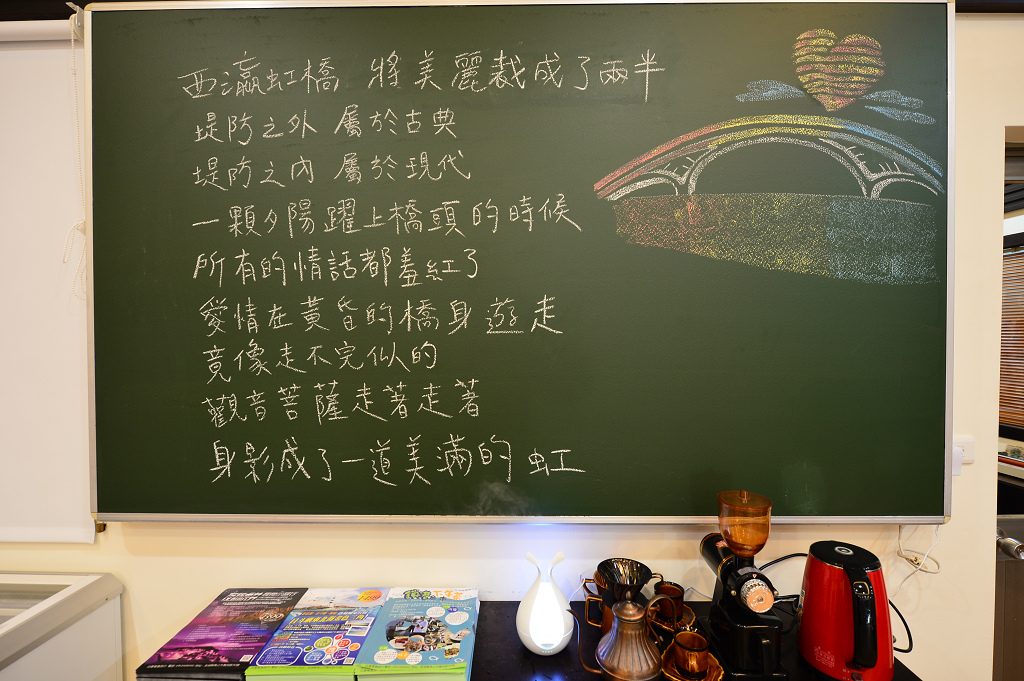 西瀛虹橋 將美麗裁成了兩半
堤防之外 屬於古典
堤防之內 屬於現代
一顆夕陽躍上橋頭的時候
所有的情話都羞紅了
愛情在黃昏的橋身遊走
竟像走不完似的
觀音菩薩走著走著
身影成了一道美滿的虹